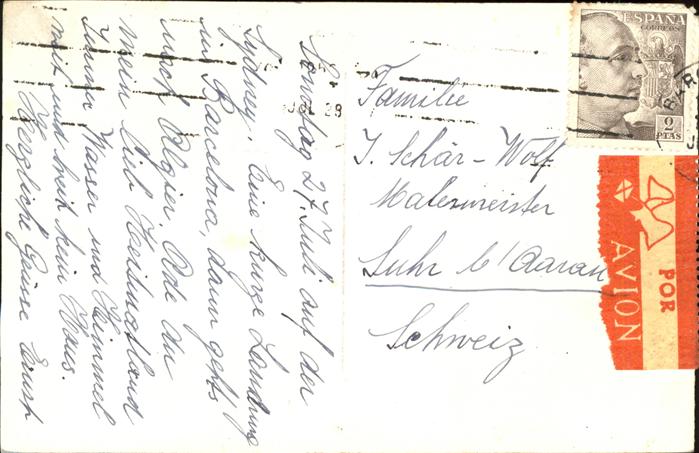 Sonntag 27. Juli auf der
Sydney. Eine kurze Landung
in Barcelona, dann gehts
nach Algier. Ade du
mein lieb Heimatland
Immer Wasser und Himmel
mit und breit kein Haus.
Herzliche Grüsse Ernst
Familie
J. Schär-Wolf
Malermeister
Suhr b/Aarau
Schweiz
ESPAÑA
CORREOS
2
PTAS
JUL 28
BAR
POR
AVION